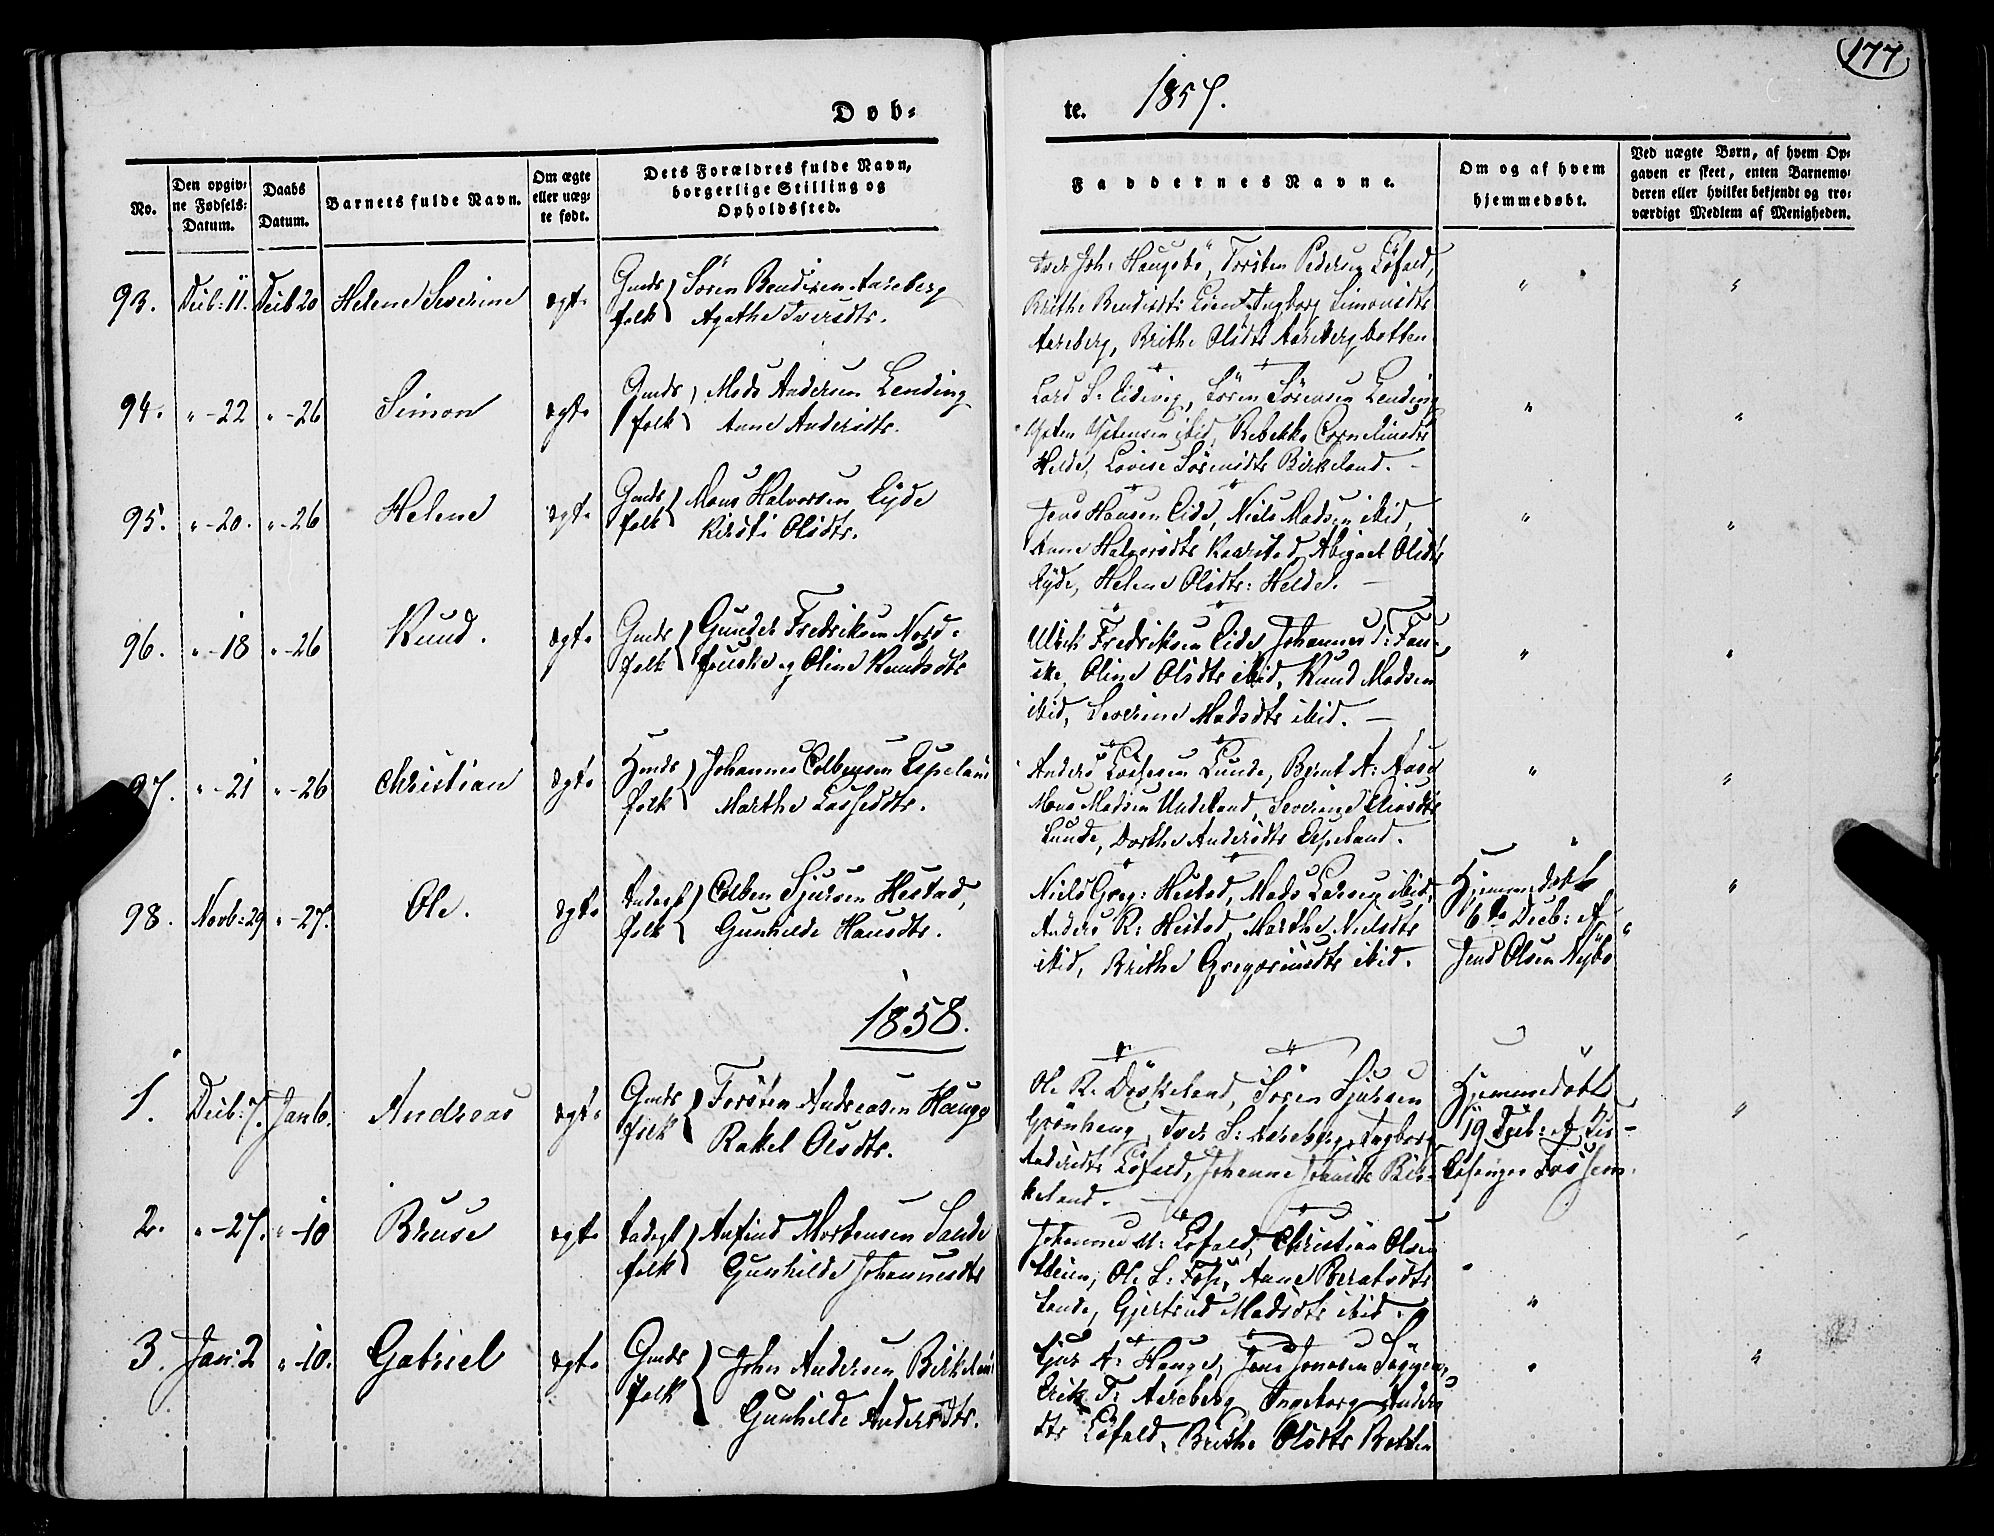 177
Døb-
te. 1857.
No.
Den opgiv-
ne Fødsels-
Datum.
Daabs
Datum.
Barnets fulde Navn.
Om ægte
eller uæg-
te født.
Dets Forældres fulde Navn,
borgerlige Stilling og
Opholdssted.
Faddernes Navne.
Om og af hvem
hjemmedøbt.
Ved uægte Børn, af hvem Op-
gaven er skeet, enten Barnemo-
deren eller hvilket bekjendt og tro-
værdigt Medlem af Menigheden.
93. Decb: 11. Decb 20 Helene Severine ægte
Gmds
folk
Sören Bendixen Aareberg
Agathe Iversdtr.
Iver Joh: Haugsbö, Torsten Pedersen Löfald,
Brithe Lien, Ingborg Simonsdtr
Aareberg, Brithe Olsdtr Aareberg botten
94. " -22 " -26 Simon ægte
Gmds
folk
Mads Andersen Lending
Anne Andersdtr.
Lars S: Eidevig, Sören Sörensen Lending
ibid, Rebekka Corneliusdtr
Helde, Lovise Sörensdtr Birkeland. -
95. " -20. " -26 Helene ægte
Gmds
folk
Mons Halvorsen Eyde
Kirsti Olsdtr.
Jens Hansen Eide, Niels Madsen ibid,
Anne Halvorsdtr Abigael Olsdtr
Eyde, Helene Olsdtr: Helde. -
96. " -18 " -26 Knud. ægte
Gmds
folk
Gunder Fredriksen Nord-
fouske og Oline Knudsdtr
Ulrik Fredriksen Eide, Johannes d: Fau-
ske, Oline Olsdtr ibid, Knud Madsen
ibid, Severine Madsdtr ibid. -
97. " -21 " -26 Christian ægte
Hmds
folk
Johannes Colbensen Espeland
Marthe Lassesdtr.
Anders Lassesen Lunde, Bernt A: Aase
Mons Madsen Undeland, Severine
Lunde, Dorthe Andersdtr Espeland.
98. Novb: 29 " -27. Ole. ægte
Inderst
folk
Colben Sjursen Hestad,
Gunhilde Hansdtr.
Niels Greg: Hestad, Mads Larsen ibid,
Anders R: Hestad, Marthe Nielsdtr
ibid, Brithe Gregoriusdtr ibid.
Hjemmedøbt
6te Decb: af
Jens Olsen Nybö
1858.
1. Decb: 7. Jan 6. Andreas ægte
Gmds
folk
Torsten Andreasen Hauge
Rakel Olsdtr.
Ole R. Döskeland, Sören Sjursen
Grönheng, Iver S: Aareberg, Ingborg
Andersdtr Löfald, Johanne Johnsdtr Bir-
keland. -
Hjemmedøbt
19 Decb: af Kir-
kesanger
2. " -27. " -10 Bruse ægte
Inderst
folk
Anfind Mortensen Sande
Gunhilde Johannesdtr
Johannes M: Löfald, Christian Olsen
Ole S: Foss, Anne Berntsdtr
Sande, Gjertrud Madsdtr ibid.
3. Jan: 2 " -10. Gabriel ægte
Gmds
folk
John Andersen Birkeland
Gunhilde Andersdtr.
Sjur A: Hauge, Jens Jonasen
Erik T: Aareberg, Ingeborg Anders
dtr Löfald, Brithe Olsdtr Botten